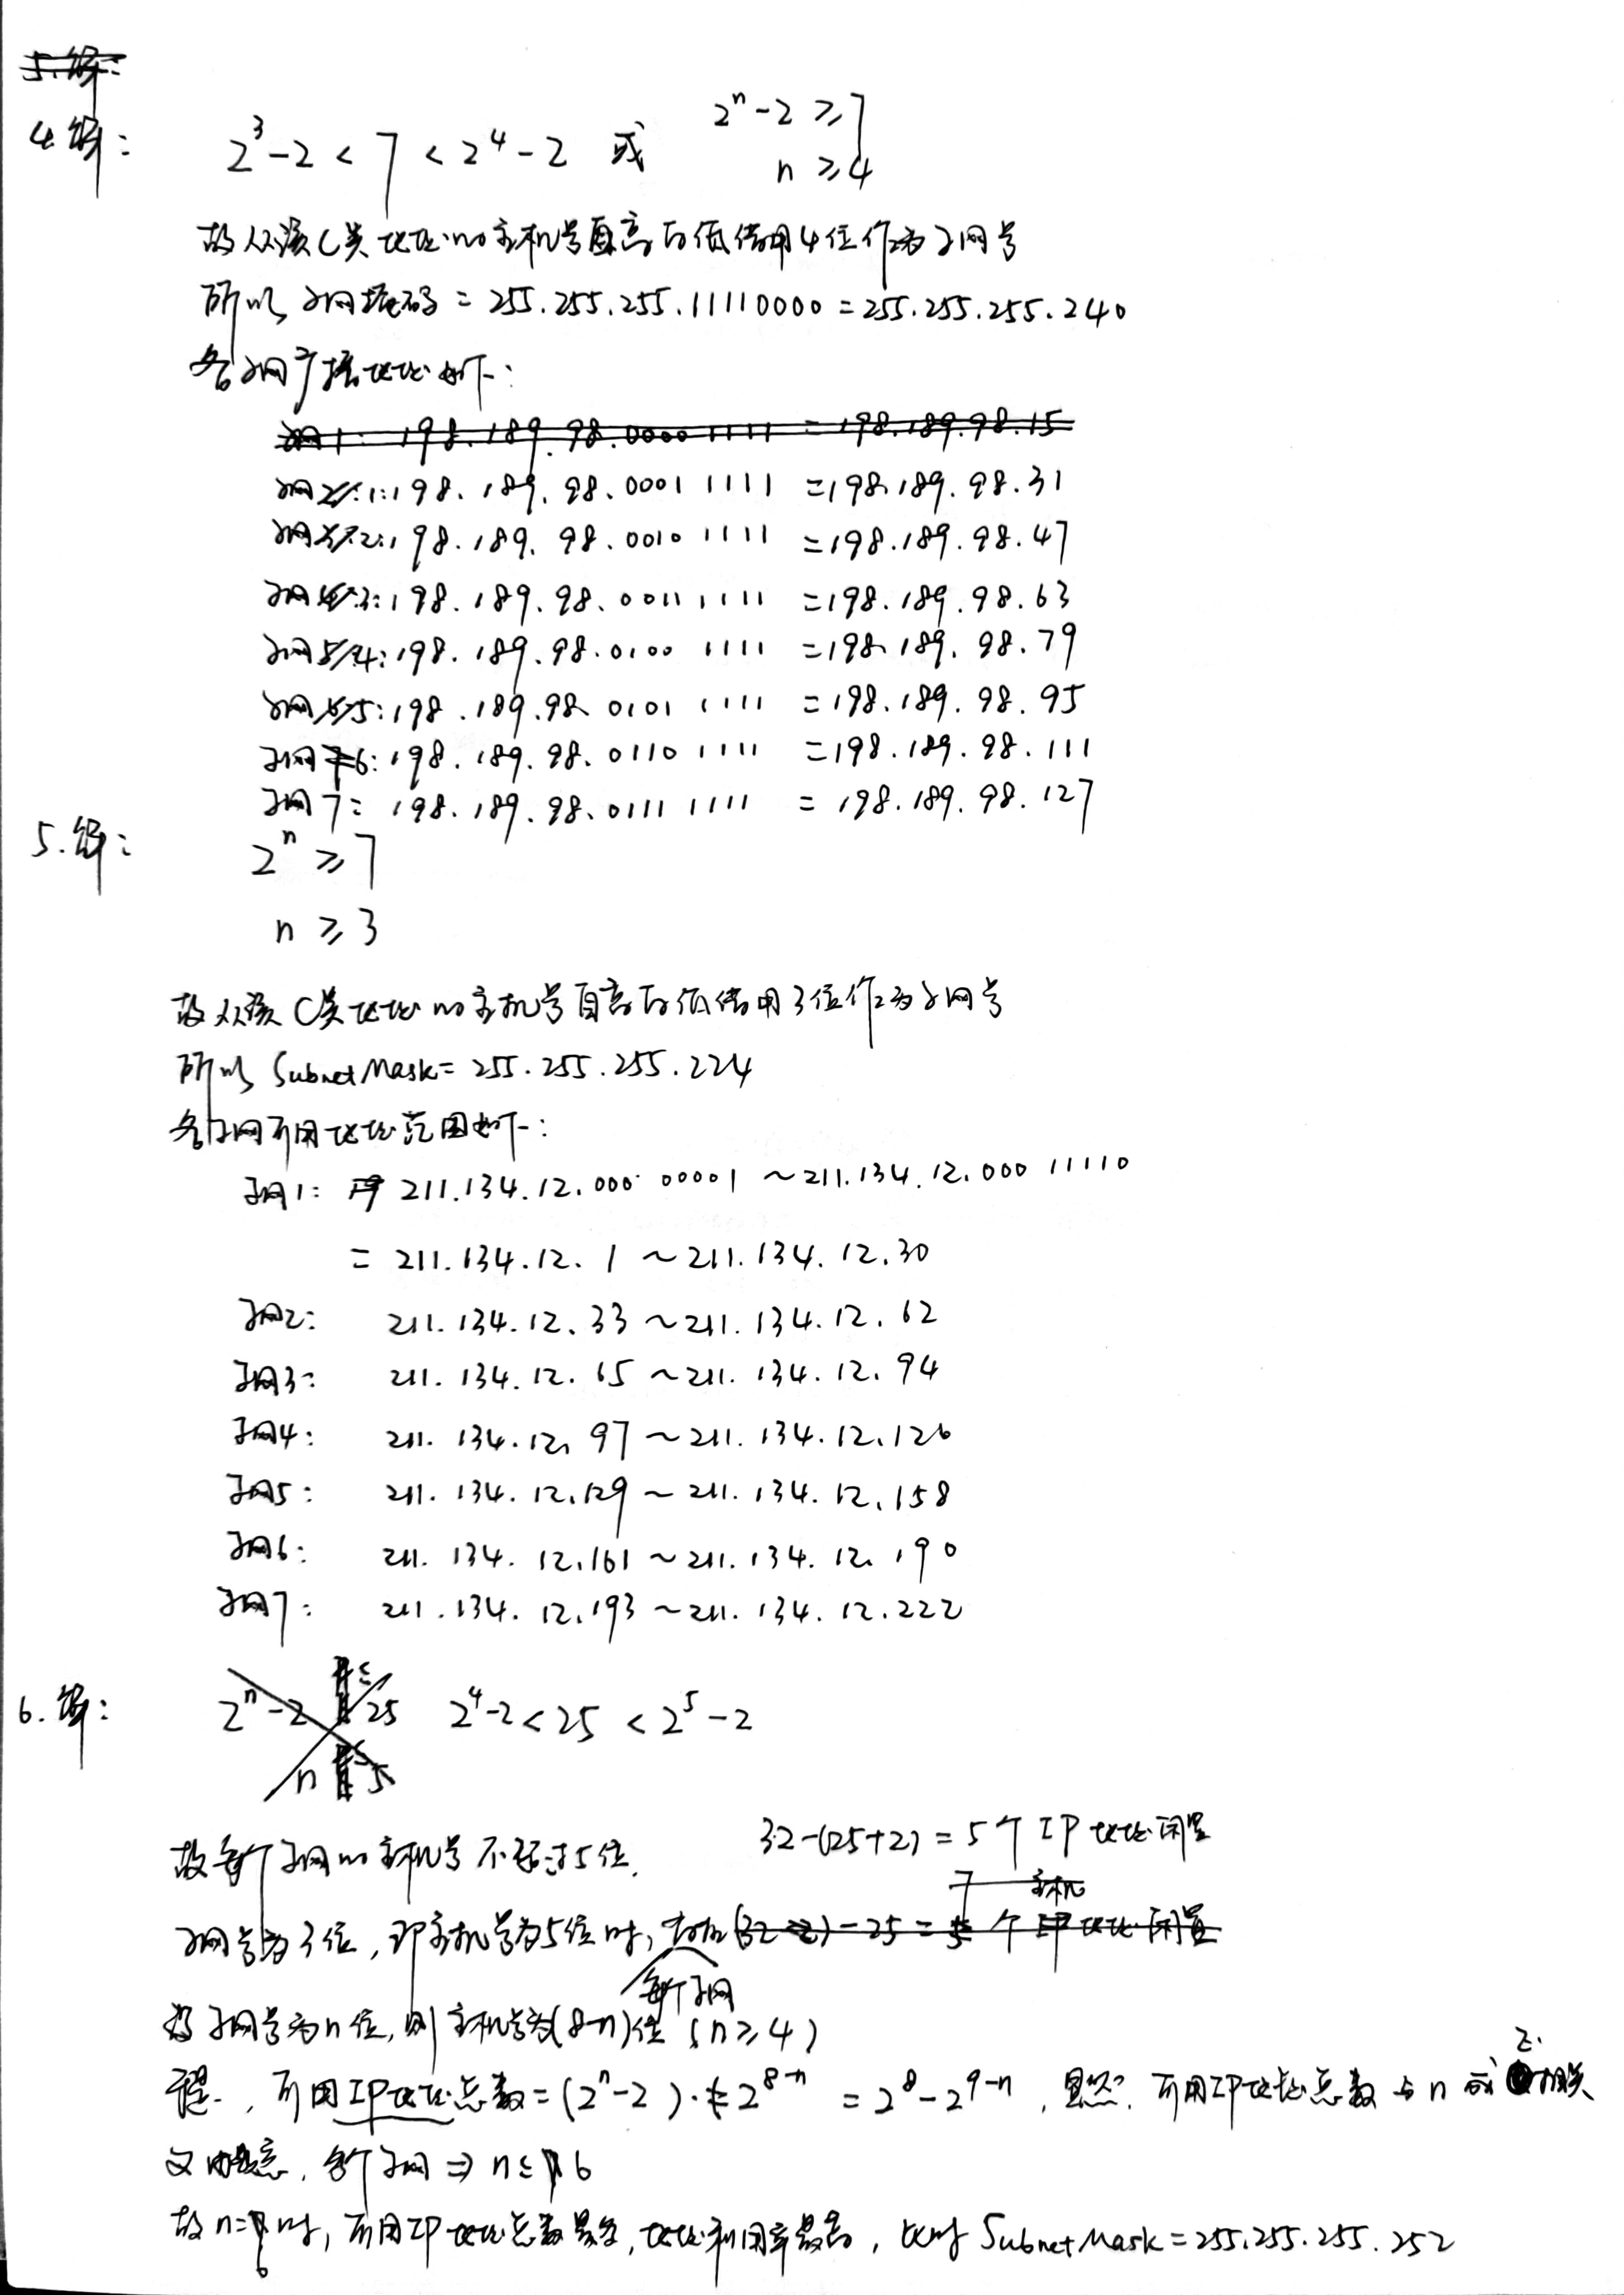 4.解: 2^3-2 < 7 < 2^4-2 或 2^n-2 ≥ 7
n ≥ 4
故从该C类地址的主机号自高向低借用4位作为子网号
所以子网掩码 = 255.255.255.11110000 = 255.255.255.240
各子网广播地址如下:
子网1: 198.189.98.0001 1111 = 198.189.98.31
子网2: 198.189.98.0010 1111 = 198.189.98.47
子网3: 198.189.98.0011 1111 = 198.189.98.63
子网4: 198.189.98.0100 1111 = 198.189.98.79
子网5: 198.189.98.0101 1111 = 198.189.98.95
子网6: 198.189.98.0110 1111 = 198.189.98.111
子网7: 198.189.98.0111 1111 = 198.189.98.127
5.解: 2^n ≥ 7
n ≥ 3
故从该C类地址的主机号自高向低借用3位作为子网号
所以 Subnet Mask = 255.255.255.224
各子网可用地址范围如下:
子网1: 211.134.12.000 00001 ~ 211.134.12.000 11110
= 211.134.12.1 ~ 211.134.12.30
子网2: 211.134.12.33 ~ 211.134.12.62
子网3: 211.134.12.65 ~ 211.134.12.94
子网4: 211.134.12.97 ~ 211.134.12.126
子网5: 211.134.12.129 ~ 211.134.12.158
子网6: 211.134.12.161 ~ 211.134.12.190
子网7: 211.134.12.193 ~ 211.134.12.222
6.解: 2^4-2 < 25 < 2^5-2
故每个子网的主机号不超过5位.
32-(25+2) = 5个IP地址闲置
子网号为3位,即主机号为5位时, 每个子网
当子网号为n位,则主机号为(8-n)位 (n≥4)
可用IP地址总数 = (2^n-2)·2^{8-n} = 2^8-2^{9-n}, 显然, 可用IP地址总数与n成正相关
又由题意, 每个子网 ⇒ n ≤ 6
故n=6时, 可用IP地址总数最多, 地址利用率最高, 此时 Subnet Mask = 255.255.255.252